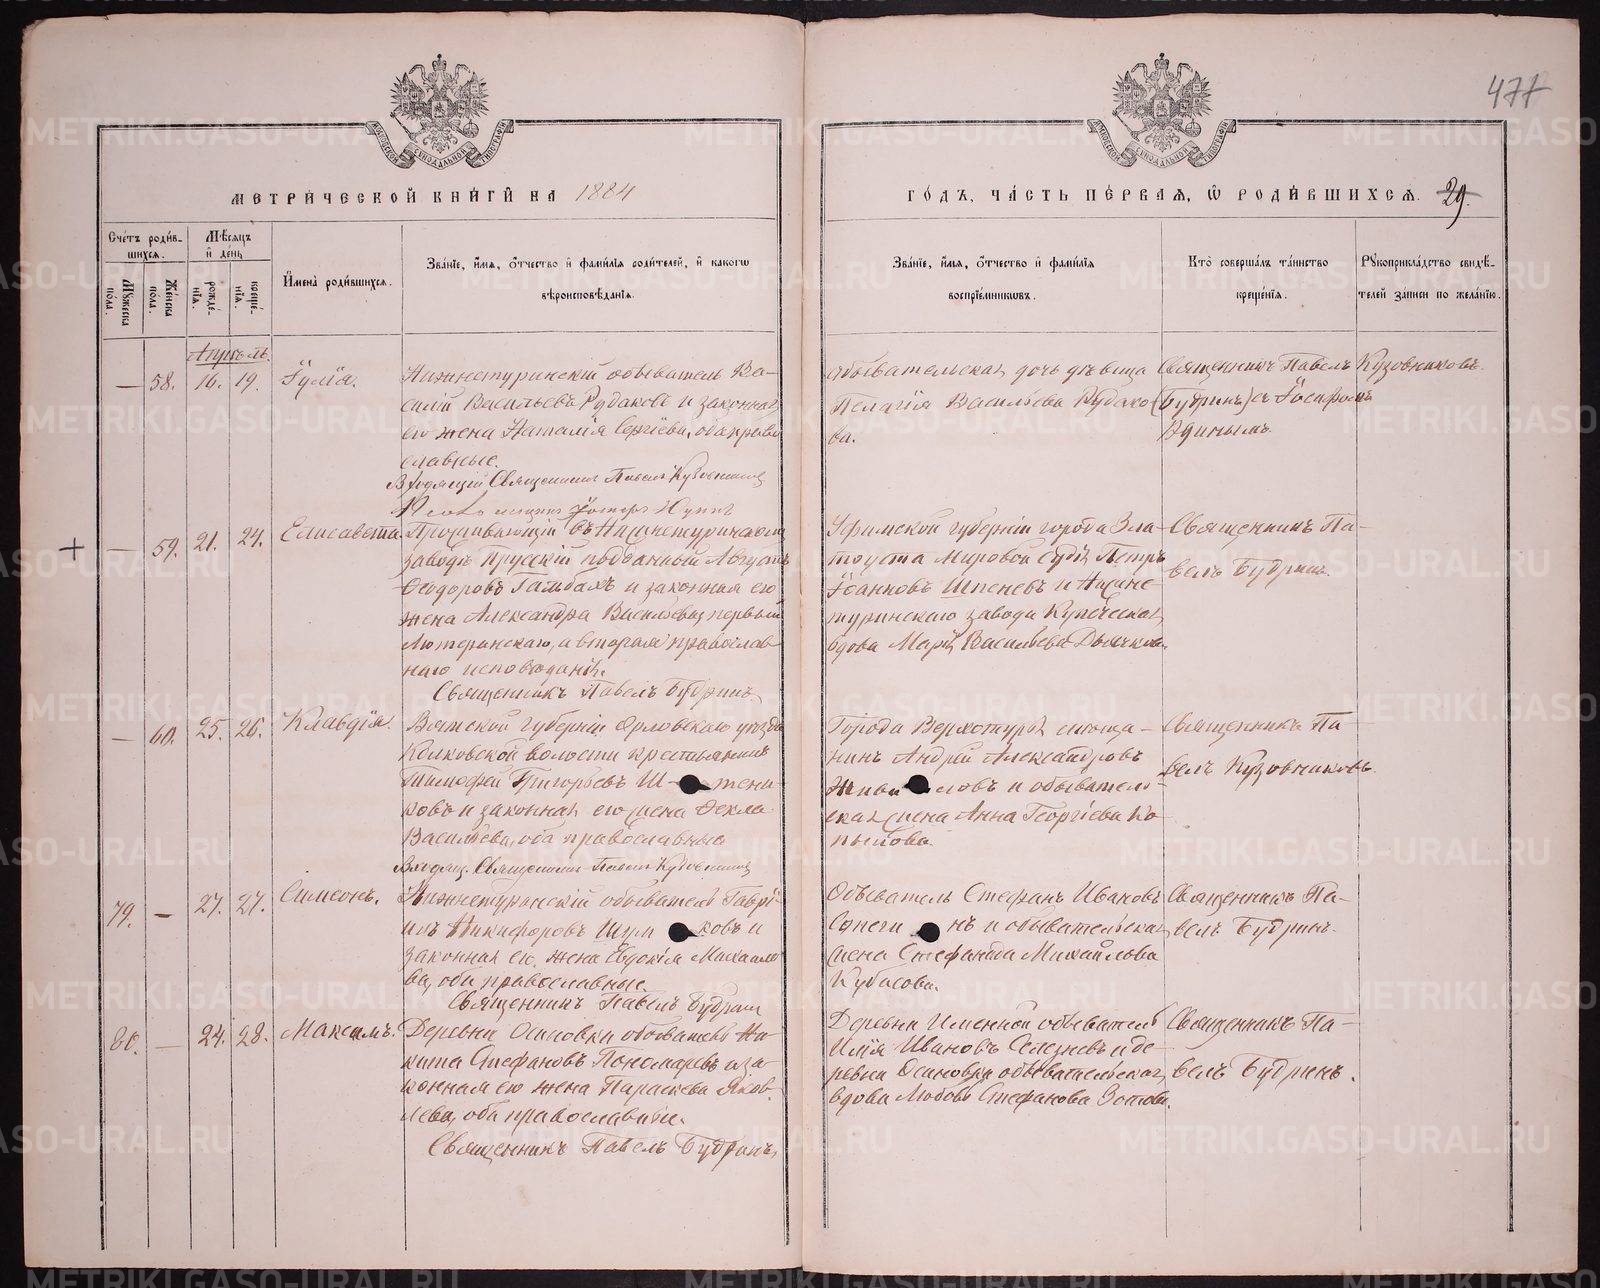 477
МЕТРИЧЕСКОЙ КНИГИ НА 1884
ГОДЪ, ЧАСТЬ ПЕРВАЯ, Ѿ РОДИВШИХСЯ. 29.
Счетъ родившихся.
Мужеска пола.
Женска пола.
Мѣсяцъ и день
рожденія.
крещенія.
Имена родившихся.
Званіе, имя, отчество и фамилія родителей, и какогѡ
вѣроисповѣданія.
Званіе, имя, отчество и фамилія
воспріемниковъ.
Кто совершалъ таинство
крещенія.
Рукоприкладство свидѣтелей записи по желанію.
Апрѣль.
— 58. 16. 19. Іулія.
Нижнетуринскій обыватель Ва-
силій Васильевъ Рудаковъ и законная
его жена Наталія Сергіева, оба право
славные.
Священникъ Павелъ Кузовниковъ
обывательская дочь дѣвица
Пелагія Васильева Рудако
ва.
Священникъ Павелъ Кузовниковъ.
— 59. 21. 24. Елисавета.
Проживающій въ Нижнетуринскомъ
заводѣ Прусскій подданный Августъ
Ѳеодоровъ и законная его
жена Александра Васильева, первый
Лютеранскаго, а вторая православ
наго исповѣданія.
Священникъ Павелъ Будринъ
Уфимской губерніи города Зла-
тоуста Мировой судья Петръ
Іоанновъ Шпеневъ и Нижне-
туринскаго завода Купеческая
вдова Марія Васильева
Священникъ Па-
велъ Будринъ.
— 60. 25. 26. Клавдія.
Вятской губерніи Орловскаго уѣзда
волости крестьянинъ
Тимофей Григорьевъ
ковъ и законная его жена Ѳекла
Васильева, оба православные
Священникъ Павелъ Кузовниковъ
Города Верхотурья мѣща-
нинъ Андрей Александровъ
ловъ и обыватель-
ская жена Анна Георгіева Ко
пылова.
Священникъ Па-
велъ Кузовниковъ.
79. — 27. 27. Симеонъ.
Нижнетуринскій обыватель Гаврі-
илъ Никифоровъ Шум ковъ и
законная его жена Евдокія Михайло
ва, оба православные.
Священникъ Павелъ Будринъ
Обыватель Стефанъ Ивановъ
нъ и обывательская
жена Стефанида Михайлова
Кубасова.
Священникъ Па-
велъ Будринъ.
80. — 24. 28. Максимъ.
Деревни Осиповки обыватель Ни-
кита Стефановъ Пономаревъ и за
конная его жена Параскева Яков
лева, оба православные.
Священникъ Павелъ Будринъ
Деревни Именной обыватель
Илія Ивановъ Селезневъ и де-
ревни Осиповки обывательская
вдова Любовь Стефанова Зотова.
Священникъ Па-
велъ Будринъ.
METRIKI.GASO-URAL.RU